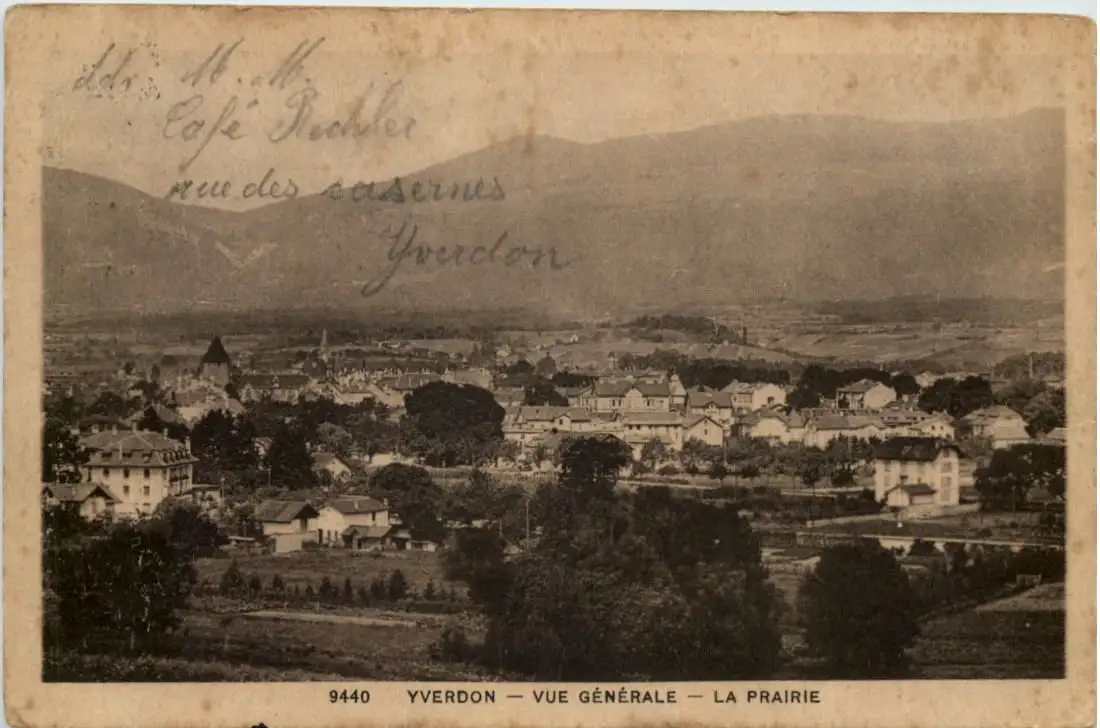 adr. M. M.
Café Richler
rue des casernes
Yverdon
9440 YVERDON — VUE GÉNÉRALE — LA PRAIRIE